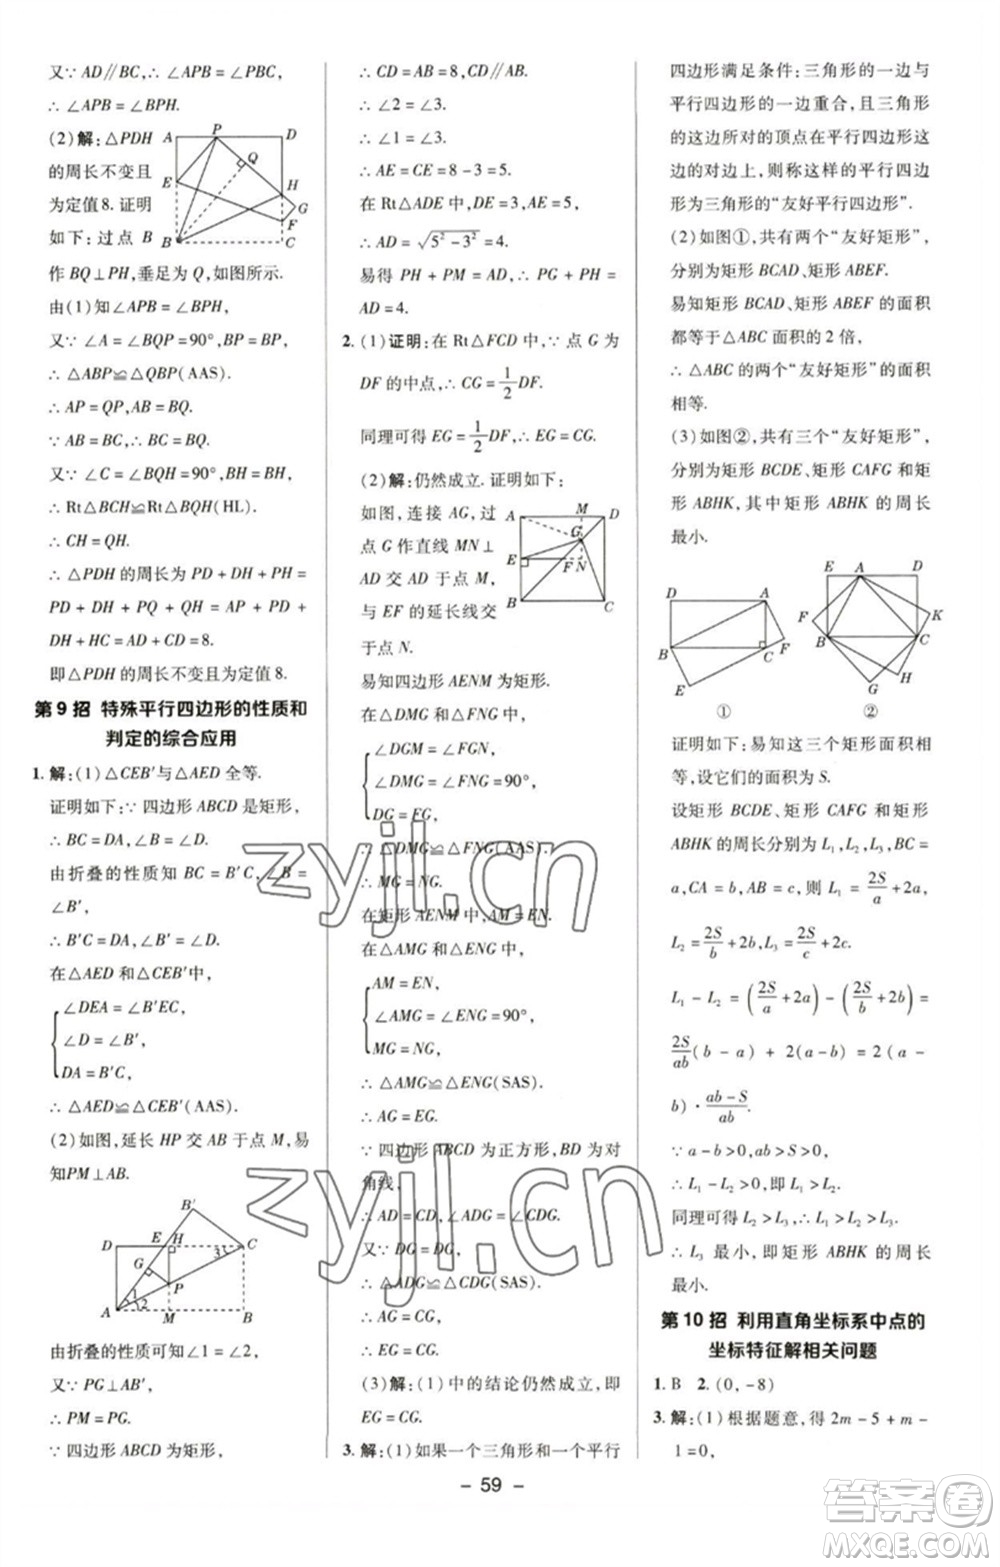 又∵ AD∥BC,∴ ∠APB = ∠PBC,
∴ ∠APB = ∠BPH.
(2)解:△PDH
的周长不变且
为定值8. 证明
如下:过点 B
作 BQ⊥PH,垂足为 Q,如图所示.
由(1)知∠APB = ∠BPH,
又∵ ∠A = ∠BQP = 90°,BP = BP,
∴ △ABP≌△QBP(AAS).
∴ AP = QP,AB = BQ.
∵ AB = BC,∴ BC = BQ.
又∵ ∠C = ∠BQH = 90°,BH = BH,
∴ Rt△BCH≌Rt△BQH(HL).
∴ CH = QH.
∴ △PDH 的周长为 PD + DH + PH =
PD + DH + PQ + QH = AP + PD +
DH + HC = AD + CD = 8.
即△PDH 的周长不变且为定值 8.
A P D
Q
E H
G
F
B C
第 9 招 特殊平行四边形的性质和
判定的综合应用
1. 解:(1)△CEB′与△AED 全等.
证明如下:∵ 四边形 ABCD 是矩形,
∴ BC = DA,∠B = ∠D.
由折叠的性质知 BC = B′C,∠B =
∠B′,
∴ B′C = DA,∠B′ = ∠D.
在△AED 和△CEB′中,
∠DEA = ∠B′EC,
∠D = ∠B′,
DA = B′C,
∴ △AED≌△CEB′(AAS).
(2)如图,延长 HP 交 AB 于点 M,易
知PM⊥AB.
B′
D E H C
3
G
P
1
2
A M B
由折叠的性质可知∠1 = ∠2.
又∵ PG⊥AB′,
∴ PM = PG.
∵ 四边形 ABCD 为矩形,
∴ CD = AB = 8,CD∥AB.
∴ ∠2 = ∠3.
∴ ∠1 = ∠3.
∴ AE = CE = 8 - 3 = 5.
在 Rt△ADE 中,DE = 3,AE = 5,
∴ AD = √(5² - 3²) = 4.
易得 PH + PM = AD,∴ PG + PH =
AD = 4.
2. (1)证明:在 Rt△FCD 中,∵ 点 G 为
DF 的中点,∴ CG = 1/2 DF.
同理可得 EG = 1/2 DF,∴ EG = CG.
(2)解:仍然成立. 证明如下:
如图,连接 AG,过
点 G 作直线 MN⊥
AD 交 AD 于点 M,
与 EF 的延长线交
于点 N.
A M D
G
E F N
B C
易知四边形 AENM 为矩形.
在△DMG 和△FNG 中,
∠DGM = ∠FGN,
∠DMG = ∠FNG = 90°,
DG = FG,
∴ △DMG≌△FNG(AAS).
∴ MG = NG.
在矩形 AENM 中,AM = EN.
在△AMG 和△ENG 中,
AM = EN,
∠AMG = ∠ENG = 90°,
MG = NG,
∴ △AMG≌△ENG(SAS).
∴ AG = EG.
∵ 四边形 ABCD 为正方形,BD 为对
角线,
∴ AD = CD,∠ADG = ∠CDG.
又∵ DG = DG,
∴ △ADG≌△CDG(SAS).
∴ AG = CG.
∴ EG = CG.
(3)解:(1)中的结论仍然成立,即
EG = CG.
3. 解:(1)如果一个三角形和一个平行
四边形满足条件:三角形的一边与
平行四边形的一边重合,且三角形
的这边所对的顶点在平行四边形这
边的对边上,则称这样的平行四边
形为三角形的“友好平行四边形”.
(2)如图①,共有两个“友好矩形”,
分别为矩形 BCAD、矩形 ABEF.
易知矩形 BCAD、矩形 ABEF 的面积
都等于△ABC 面积的 2 倍,
∴ △ABC 的两个“友好矩形”的面积
相等.
(3)如图②,共有三个“友好矩形”,
分别为矩形 BCDE、矩形 CAFG 和矩
形 ABHK,其中矩形 ABHK 的周长
最小.
D A
B C F
E
①
E A D
F K
B C
G H
②
证明如下:易知这三个矩形面积相
等,设它们的面积为 S.
设矩形 BCDE、矩形 CAFG 和矩形
ABHK 的周长分别为 L₁,L₂,L₃,BC =
a,CA = b,AB = c,则 L₁ = 2S/a + 2a,
L₂ = 2S/b + 2b,L₃ = 2S/c + 2c.
L₁ - L₂ = (2S/a + 2a) - (2S/b + 2b) =
2S/ab (b - a) + 2(a - b) = 2(a -
b)· (ab - S)/ab.
∵ a - b > 0,ab > S > 0,
∴ L₁ - L₂ > 0,即 L₁ > L₂.
同理可得 L₂ > L₃,∴ L₁ > L₂ > L₃.
∴ L₃ 最小,即矩形 ABHK 的周长
最小.
第 10 招 利用直角坐标系中点的
坐标特征解相关问题
1. B 2. (0, -8)
3. 解:(1)根据题意,得 2m - 5 + m -
1 = 0,
- 59 -
zyjl.cn
zyjl.cn
答案圈
MXQE.COM